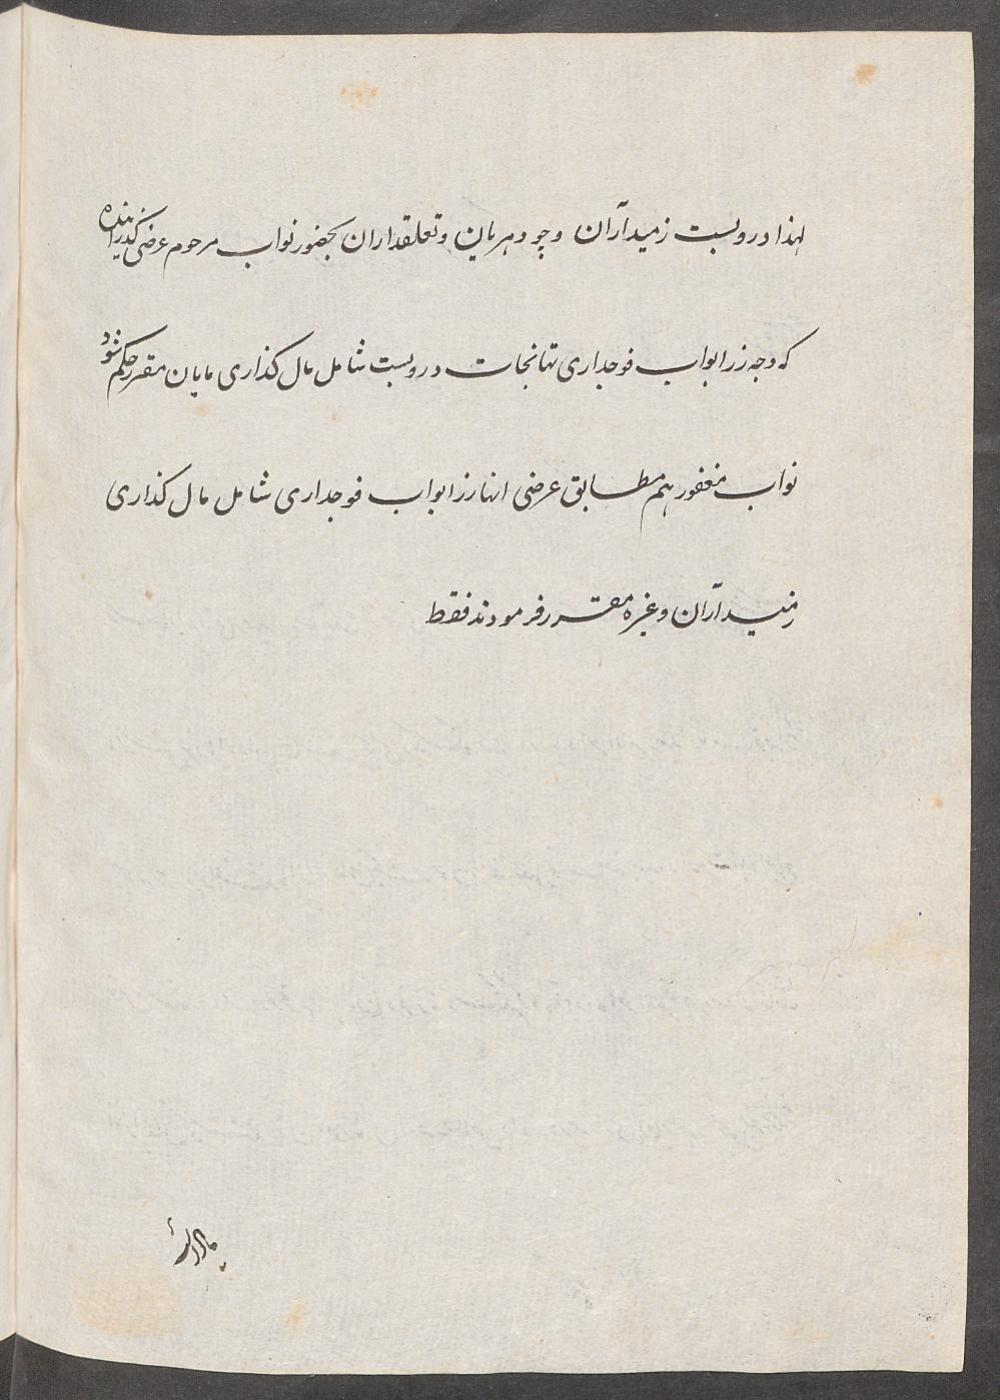 لهذا دروبست زمیدآران وچودهریان وتعلقداران بحضور نواب مرحوم عرضی گذرانیده
که وجه زر ابواب فوجداری تهانجات دروبست شامل مال گذاری مایان مقرر حکم شود
نواب مغفور هم مطابق عرضی انها زر ابواب فوجداری شامل مال گذاری
زمیدآران وغیره مقرر فرمودند فقط